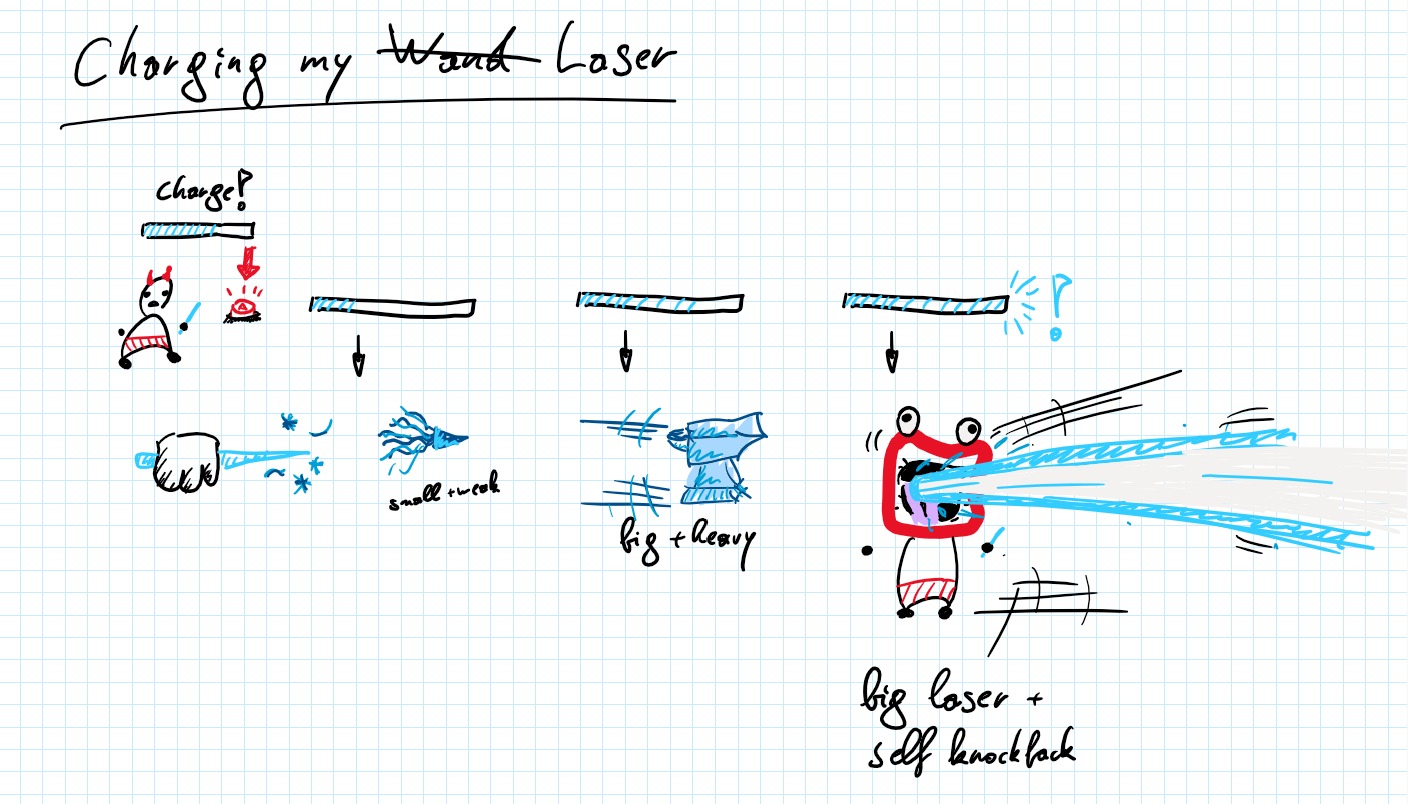 Charging my Wand Laser
charge?
small + weak
big + heavy
!
big laser +
self knockback